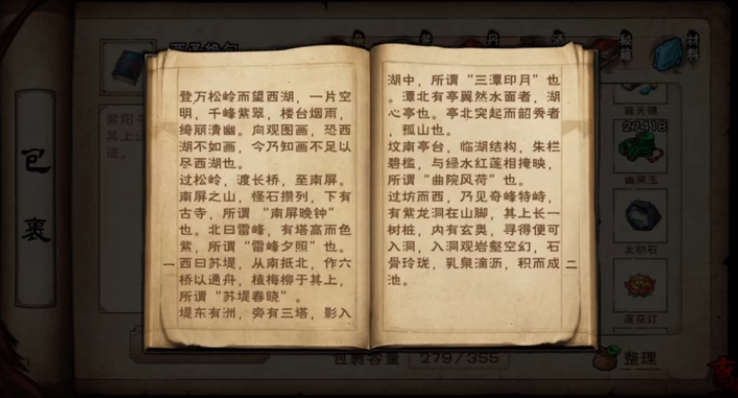 登万松岭而望西湖，一片空
明，千峰紫翠，楼台烟雨，
绮丽清幽。向观图画，恐西
湖不如画，今乃知画不足以
尽西湖也。
过松岭，渡长桥，至南屏。
南屏之山，怪石攒列，下有
古寺，所谓“南屏晚钟”
也。北曰雷峰，有塔高而色
紫，所谓“雷峰夕照”也。
西曰苏堤，从南抵北，作六
桥以通舟，植梅柳于其上，
所谓“苏堤春晓”。
堤东有洲，旁有三塔，影入
一
湖中，所谓“三潭印月”也
。潭北有亭翼然水面者，湖
心亭也。亭北突起而韶秀者
，孤山也。
坟南亭台，临湖结构，朱栏
碧槛，与绿水红莲相掩映，
所谓“曲院风荷”也。
过坊而西，乃见奇峰特峙，
有紫龙洞在山脚，其上长一
树桩，内有玄奥，寻得便可
入洞，入洞观岩壑空幻，石
骨玲珑，乳泉滴沥，积而成
池。
二
包裹
材料
27418
幽冥玉
太初石
莲花灯
包裹容量
279/355
整理